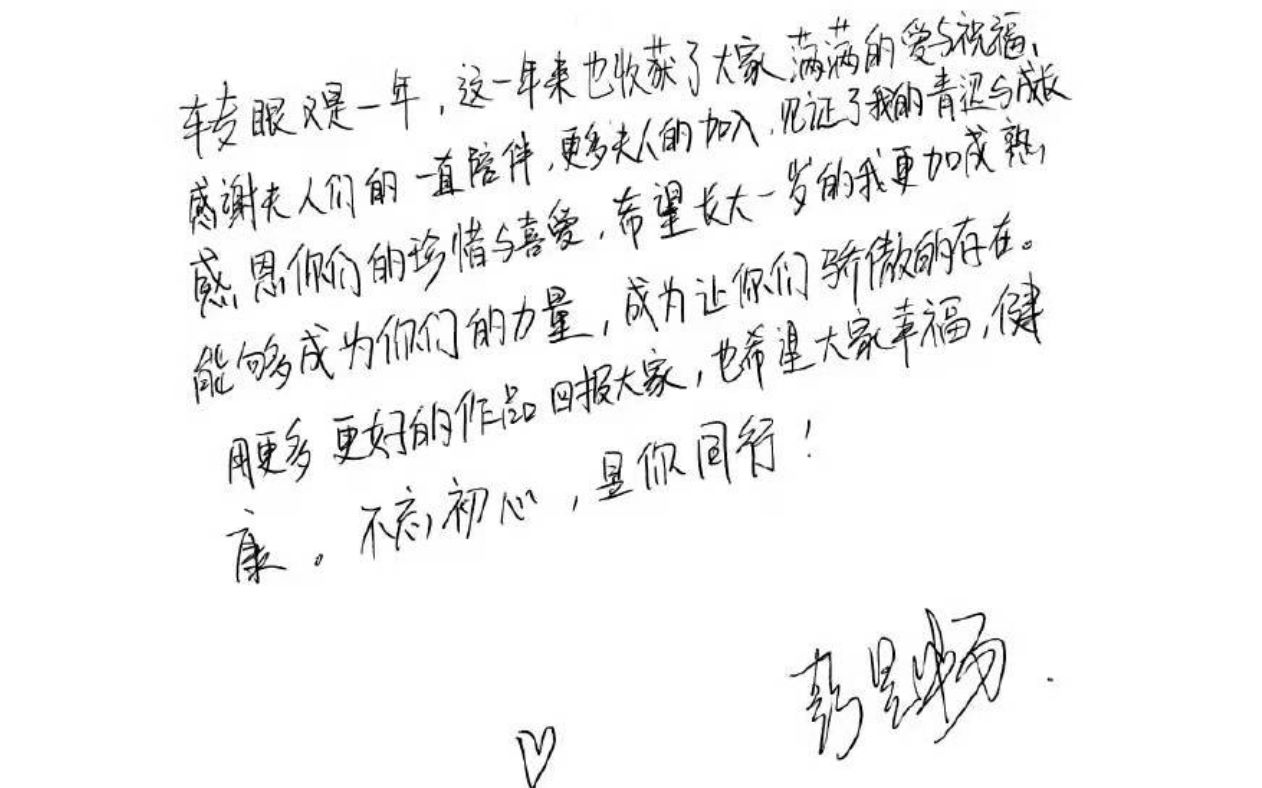 转眼又是一年，这一年来也收获了大家满满的爱与祝福，
感谢夫人们的一直陪伴，更多夫人的加入，见证了我的青涩与成长
感恩你们的珍惜与喜爱，希望长大一岁的我更加成熟，
能够成为你们的力量，成为让你们骄傲的存在。
用更多更好的作品回报大家，也希望大家幸福，健
康。不忘初心，昱你同行！
彭昱畅.